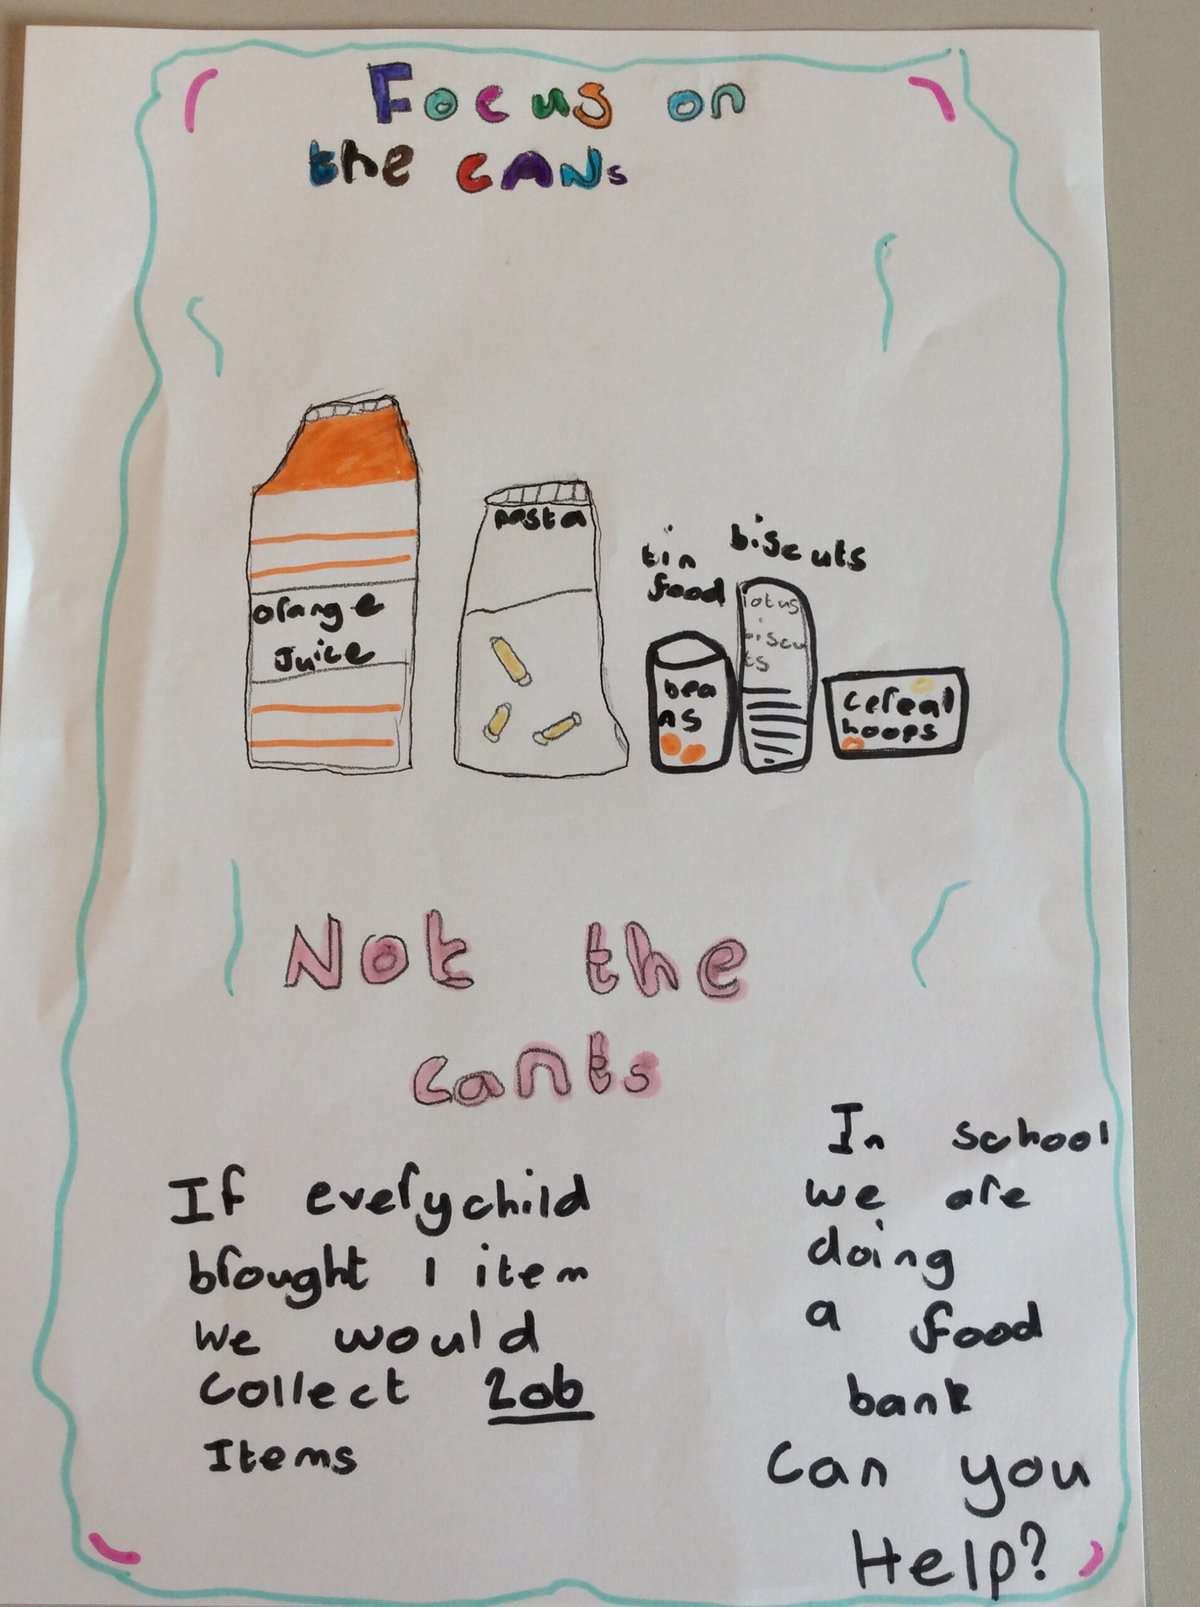 Focus on
the CANs
orange
Juice
pasta
tin
food
bea
ns
biscuts
lotus
biscu
ts
cereal
hoops
Not the
cants
If every child
brought 1 item
we would
collect 206
Items
In school
we are
doing
a food
bank
Can you
Help?